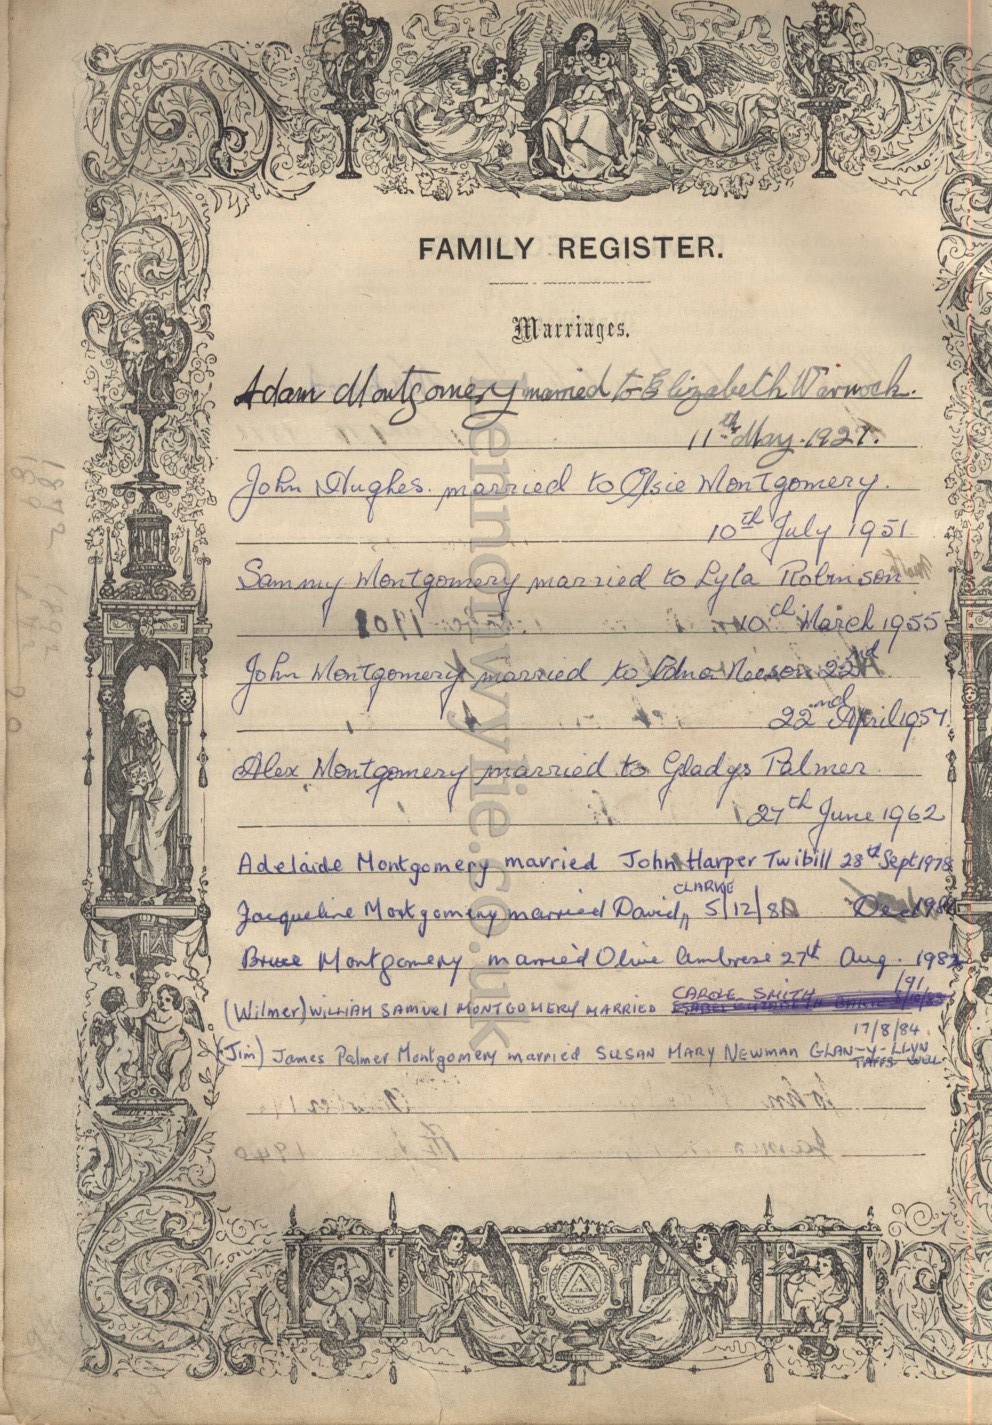 FAMILY REGISTER.
Marriages.
Adam Montgomery married to Elizabeth Warnock.
11th May. 1927.
John Hughes. married to Elsie Montgomery.
10th July 1951
Sammy Montgomery married to Lyla Robinson
10th March 1955
John Montgomery married to Edna Neeson 22nd
22nd April 1957
Alex Montgomery married to Gladys Palmer
27th June 1962
Adelaide Montgomery married John Harper Twibill 28th Sept 1978
CLARKE
Jacqueline Montgomery married David 5/12/80 Dec
Bruce Montgomery married Olive Ambrose 27th Aug. 1982
CAROLE SMITH /91
(Wilmer) WILLIAM SAMUEL MONTGOMERY MARRIED
17/8/84.
(Jim) James Palmer Montgomery married SUSAN MARY NEWMAN GLAN-Y-LLYN
TAFFS WELL
hennowylie.co.uk